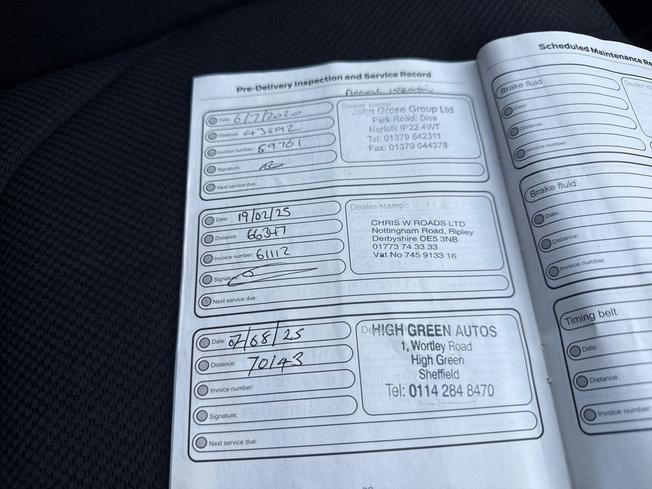 Pre-Delivery Inspection and Service Record
Annual
Date: 6/7/2020
Distance: 43892
Invoice number: 69761
Signature:
Next service due:
Dealer stamp
John Grose Group Ltd
Park Road, Diss
Norfolk IP22 4WT
Tel: 01379 642311
Fax: 01379 644378
Date: 19/02/25
Distance: 66347
Invoice number: 61112
Signature:
Next service due:
Dealer stamp
CHRIS W ROADS LTD
Nottingham Road, Ripley
Derbyshire DE5 3NB
01773 74 33 33
Vat No 745 9133 16
Date: 07/08/25
Distance: 70143
Invoice number:
Signature:
Next service due:
HIGH GREEN AUTOS
1, Wortley Road
High Green
Sheffield
Tel: 0114 284 8470
Scheduled Maintenance
Brake fluid
Date:
Distance:
Invoice number:
Brake fluid
Date:
Distance:
Invoice number:
Timing belt
Date:
Distance:
Invoice number